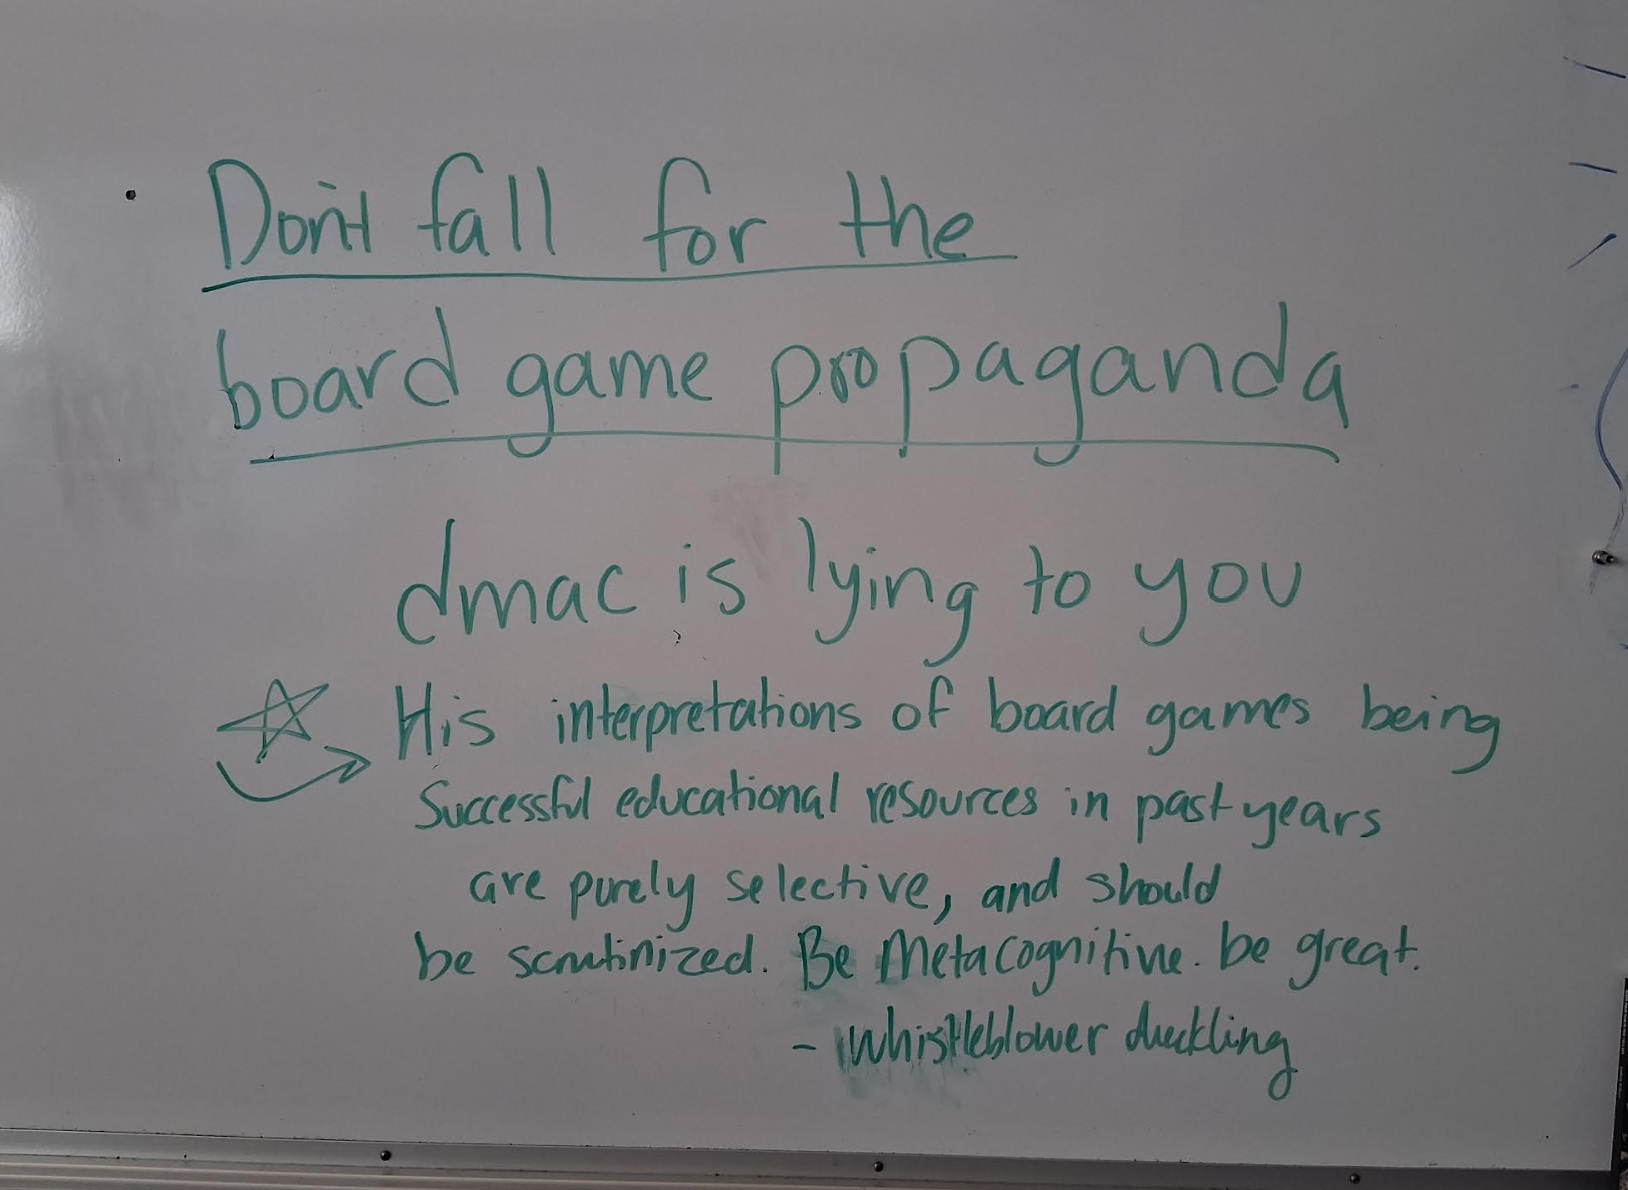 Don't fall for the
board game propaganda
dmac is lying to you
His interpretations of board games being
Successful educational resources in past years
are purely selective, and should
be scrutinized. Be Metacognitive. be great.
- whistleblower duckling